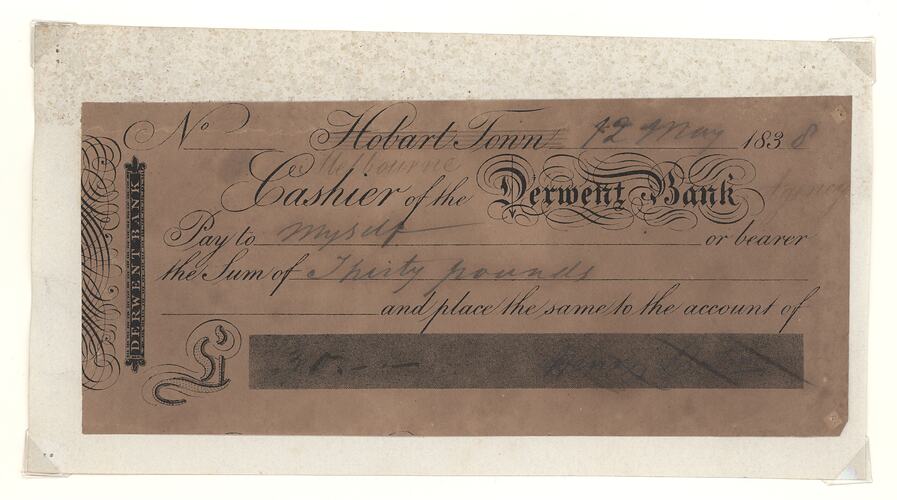 No Hobart Town 12 May 1838
Melbourne
Cashier of the Derwent Bank Agency
Pay to Myself or bearer
the Sum of Thirty pounds
and place the same to the account of
£ 30.--
DERWENT BANK